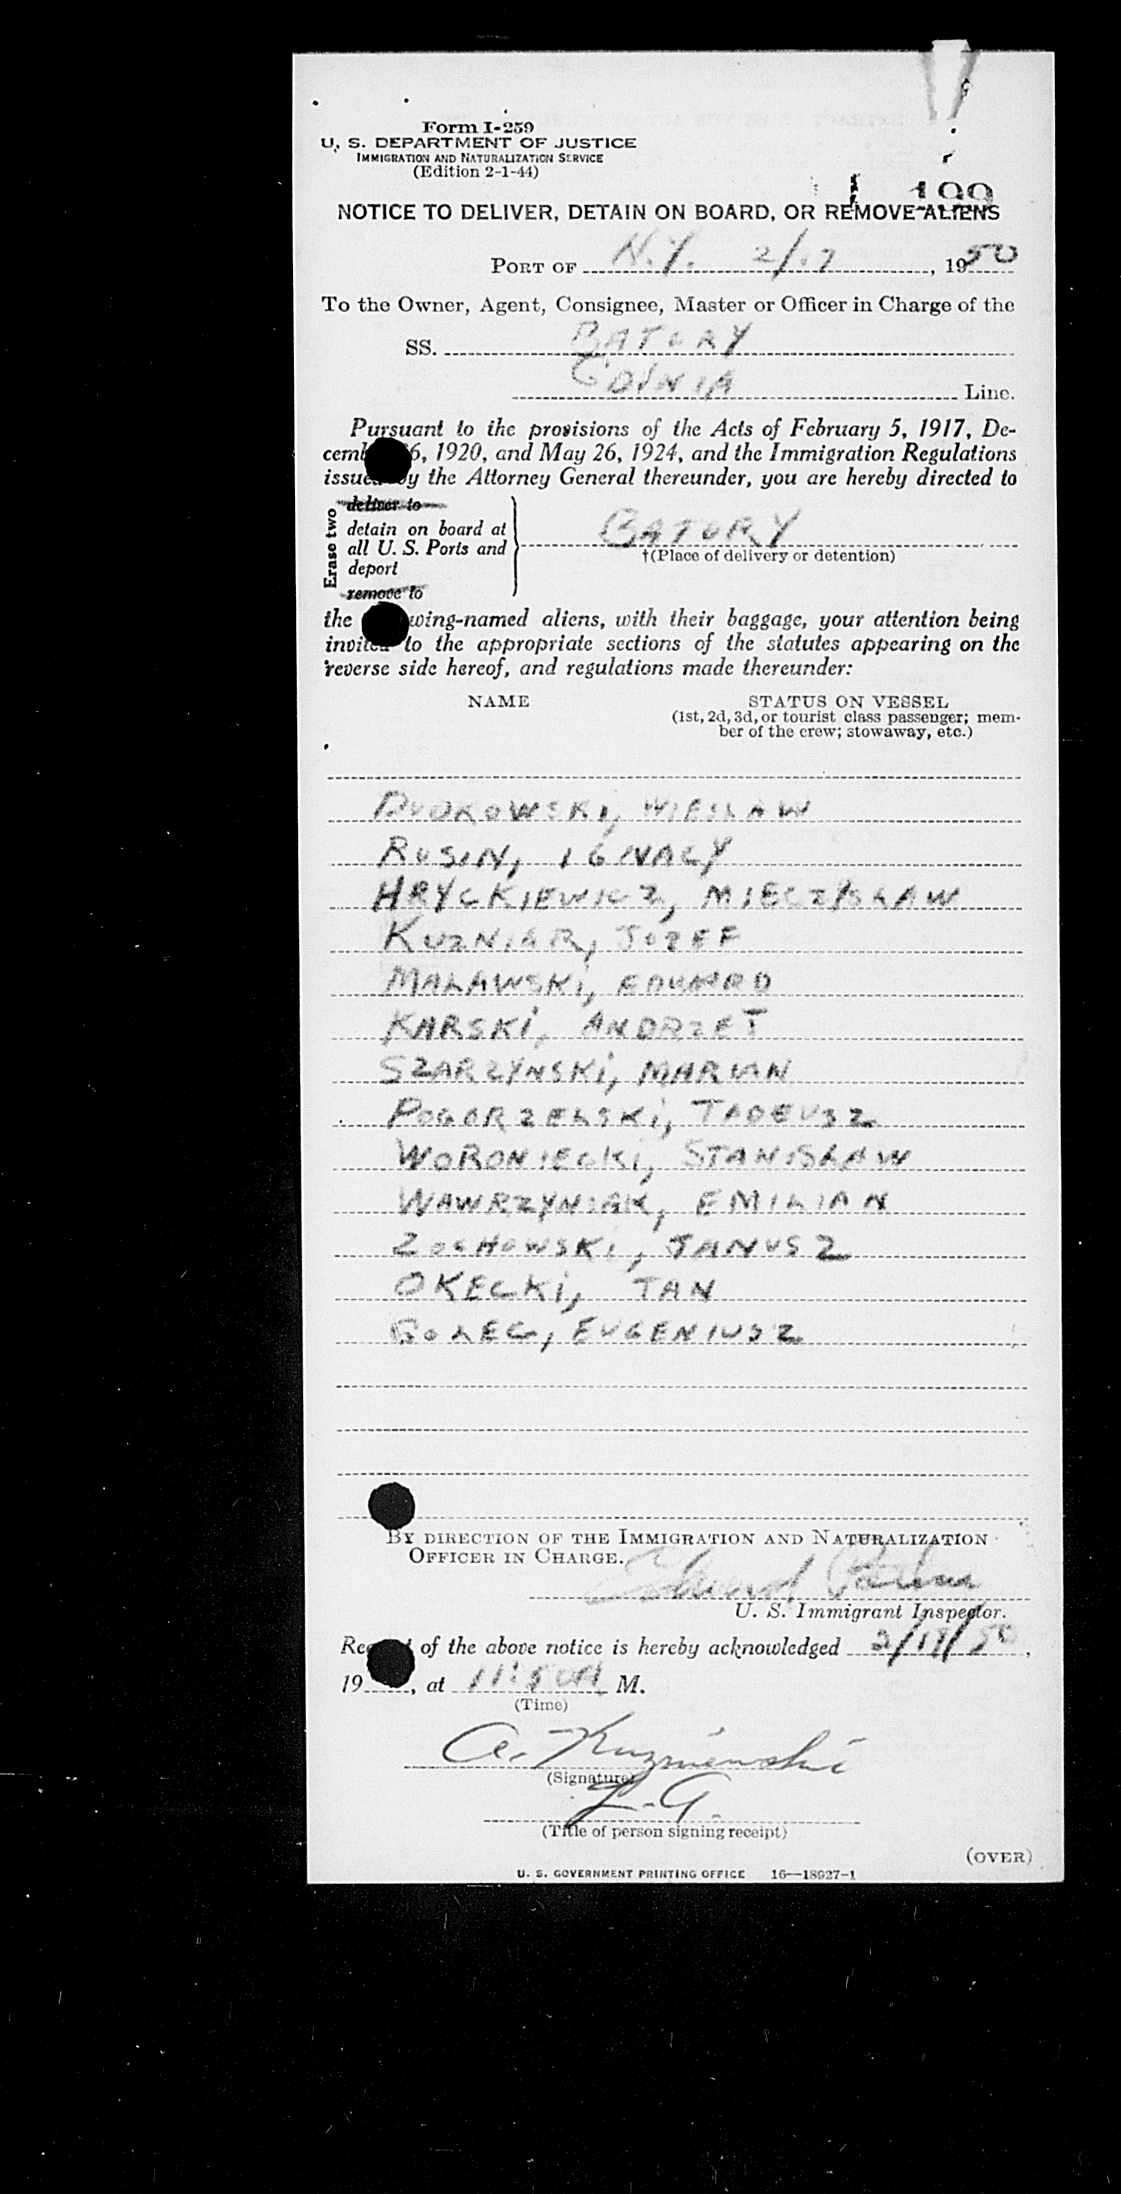 Form I-259
U. S. DEPARTMENT OF JUSTICE
IMMIGRATION AND NATURALIZATION SERVICE
(Edition 2-1-44)
199
NOTICE TO DELIVER, DETAIN ON BOARD, OR REMOVE ALIENS
PORT OF N.Y. 2/17, 1950
To the Owner, Agent, Consignee, Master or Officer in Charge of the
SS. BATORY
GDYNIA Line.
Pursuant to the provisions of the Acts of February 5, 1917, De-
6, 1920, and May 26, 1924, and the Immigration Regulations
issued by the Attorney General thereunder, you are hereby directed to
Erase two
deliver to
detain on board at
all U. S. Ports and
deport
remove to
BATORY
†(Place of delivery or detention)
the wing-named aliens, with their baggage, your attention being
invited to the appropriate sections of the statutes appearing on the
reverse side hereof, and regulations made thereunder:
NAME STATUS ON VESSEL
(1st, 2d, 3d, or tourist class passenger; mem-
ber of the crew; stowaway, etc.)
WIESLAW
RUSIN, IGNACY
HRYCKIEWICZ, MIECZYSLAW
KUZNIAR, JOZEF
MALAWSKI, EDWARD
KARSKI, ANDRZEJ
SZARZYNSKI, MARIAN
POGORZELSKI, TADEUSZ
WORONIECKI, STANISLAW
WAWRZYNIAK, EMILIAN
ZOCHOWSKI, JANUSZ
OKECKI, JAN
GOLEC, EUGENIUSZ
BY DIRECTION OF THE IMMIGRATION AND NATURALIZATION
OFFICER IN CHARGE.
Edward
U. S. Immigrant Inspector.
of the above notice is hereby acknowledged 2/17/50,
19 , at 11:50A M.
(Time)
A. Kuzniewski
(Signature)
(Title of person signing receipt)
(OVER)
U. S. GOVERNMENT PRINTING OFFICE 16—18927-1